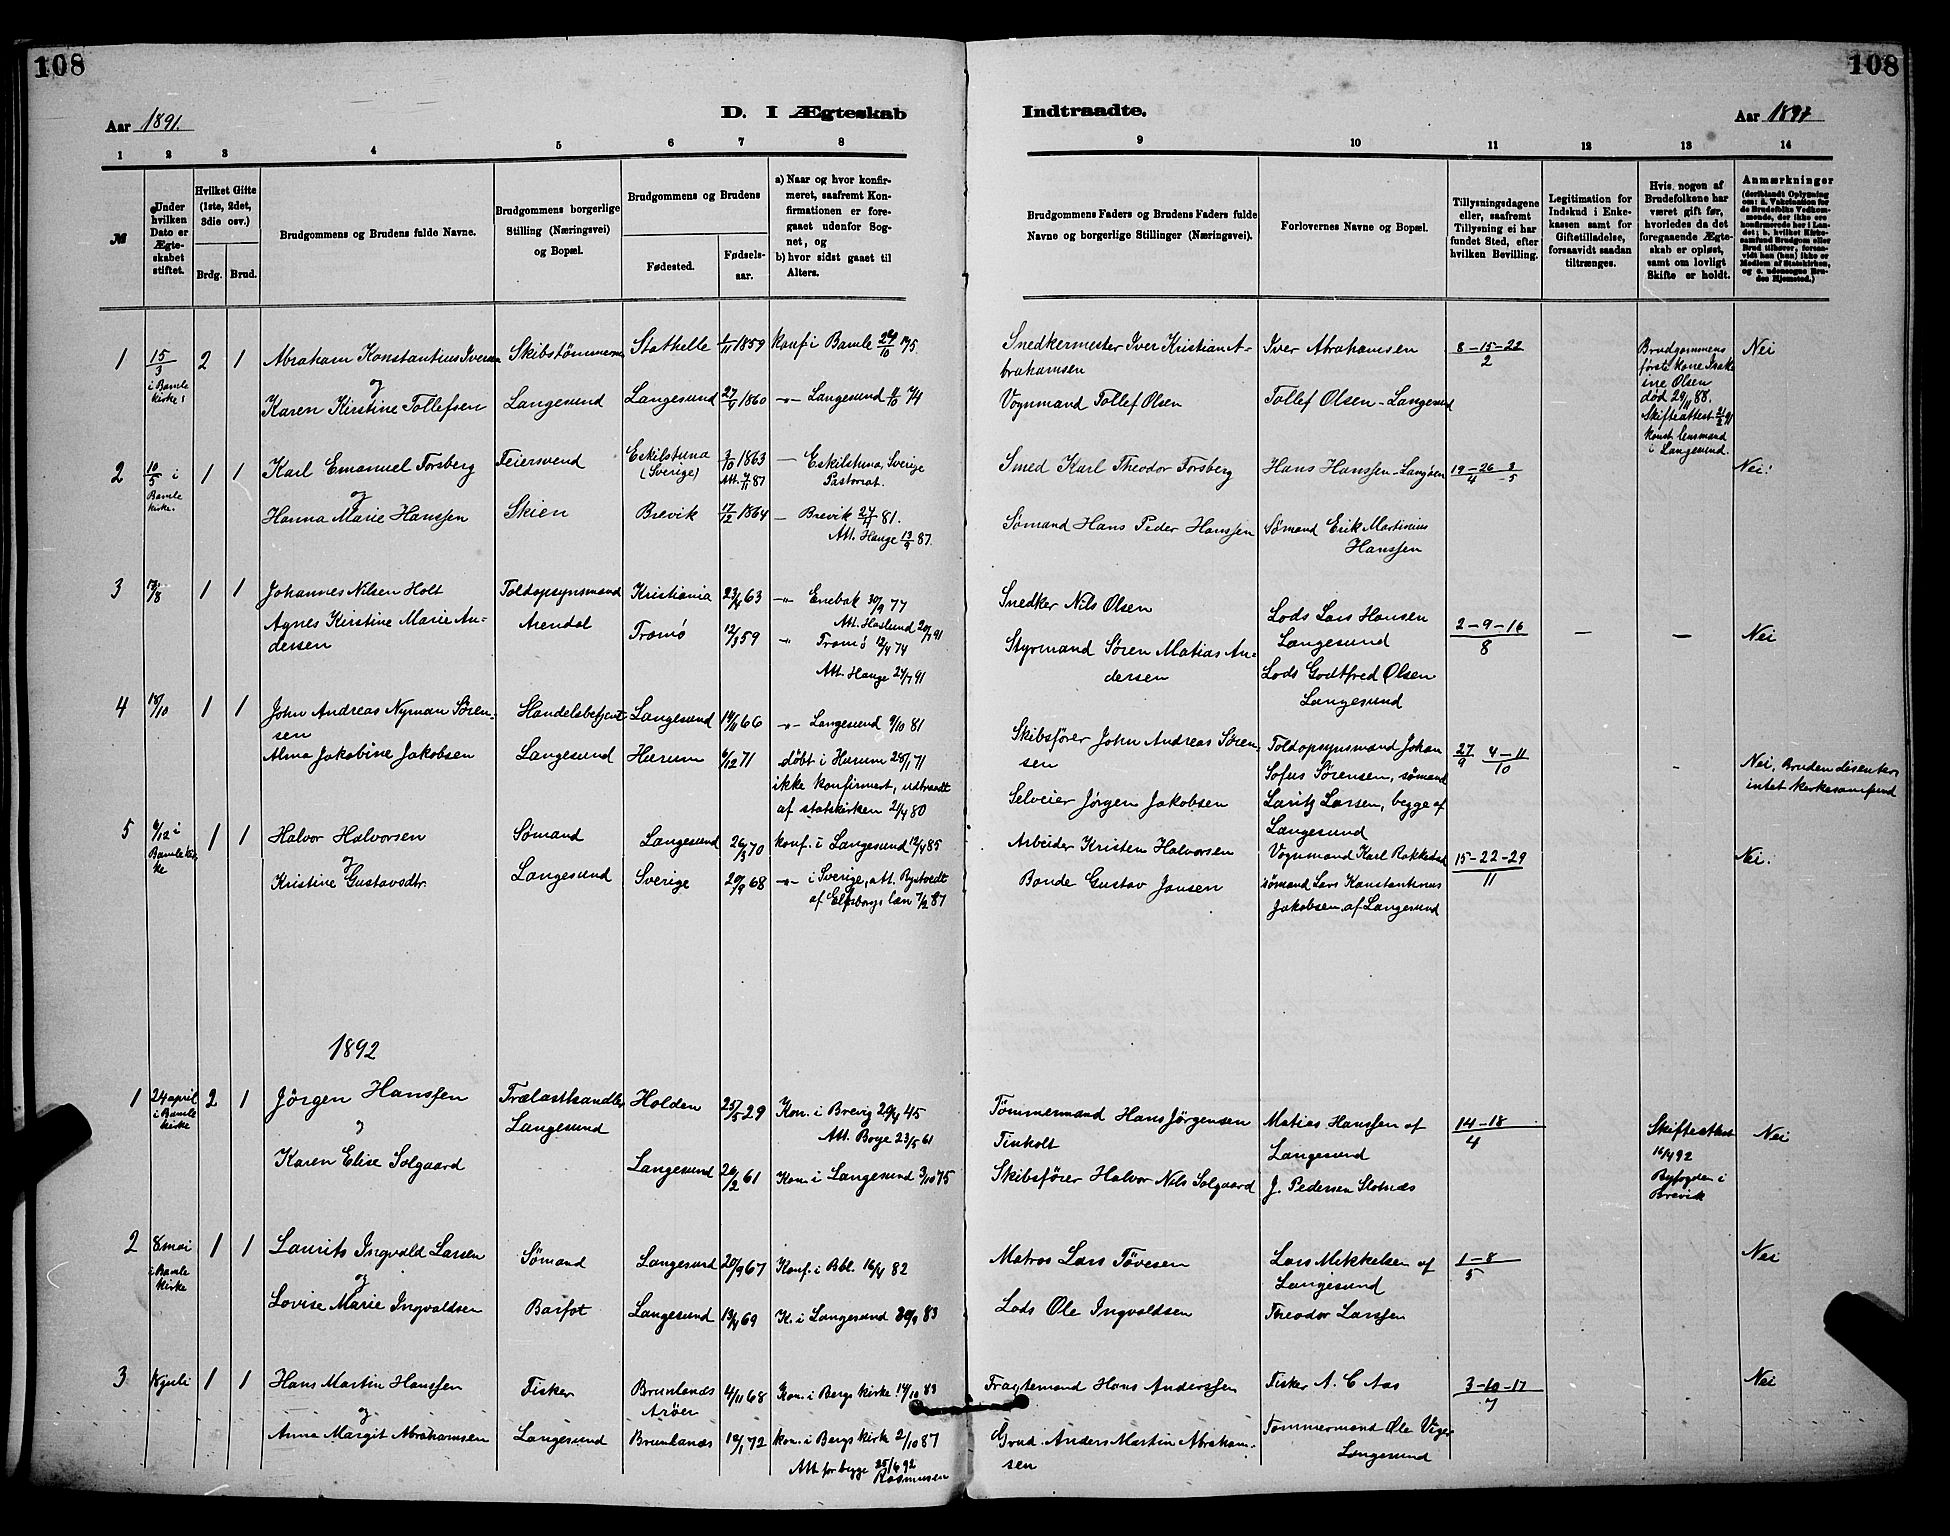 108
108
Aar 1891.
D. I Ægteskab
Indtraadte.
Aar 1891
1 2 3 4 5 6 7 8
9 10 11 12 13 14
№
Under hvilken Dato er Ægteskabet stiftet.
Hvilket Gifte (1ste, 2det, 3die osv.)
Brdg. Brud.
Brudgommens og Brudens fulde Navne.
Brudgommens borgerlige Stilling (Næringsvei) og Bopæl.
Brudgommens og Brudens
Fødested.
Fødselsaar.
a) Naar og hvor konfirmeret, saafremt Konfirmationen er foregaaet udenfor Sognet, og
b) hvor sidst gaaet til Alters.
Brudgommens Faders og Brudens Faders fulde Navne og borgerlige Stillinger (Næringsvei).
Forlovernes Navne og Bopæl.
Tillysningsdagene eller, saafremt Tillysning ei har fundet Sted, efter hvilken Bevilling.
Legitimation for Indskud i Enkekassen samt for Giftetilladelse, forsaavidt saadan tiltrænges.
Hvis nogen af Brudefolkene har været gift før, hvorledes da det foregaaende Ægteskab er opløst, samt om lovligt Skifte er holdt.
Anmærkninger (deriblandt Oplysning om: a. Vakcination for de Brudefolks Vedkommende, der ikke ere konfirmerede her i Landet; b. hvilket Kirkesamfund Brudgom eller Brud tilhører, forsaavidt han (hun) ikke er Medlem af Statskirken, og c. udensogns Brudes Hjemsted.)
1 15/3 i Bamle kirke 2 1 Abraham Konstantius Iversen Skibstømmerm Stathelle 1859 Konf i Bamle
og
Karen Kirstine Tollefsen Langesund Langesund 1860 -"- Langesund
Snedkermester Iver Kristian Abrahamsen Iver Abrahamsen 8-15-22/2
Vognmand Tollef Olsen Tollef Olsen - Langesund
Brudgommens første kone
ine Olsen
død 29/11 88.
Skifteattest
konst. lensmand
i Langesund.
Nei
2 10/5 i Bamle kirke. 1 1 Karl Emanuel Forsberg Feiersvend Eskilstuna (Sverige) 3/10 1863 - Eskilstuna, Sverige
Pastorat.
og
Hanna Marie Hanssen Skien Brevik 17/12 1864 - Brevik 81.
Att. Hauge 13/9 87.
Smed Karl Theodor Forsberg Hans Hanssen - Langøen 19-26/4 3/5 Nei.
Sømand Hans Peder Hanssen Sømand Erik Martinius
Hanssen
3 1 1 Johannes Nilsen Holt Toldopsynsmand Kristiania 23/4 63 -"- Enebak 30/9 77
Att. Haslund 20/7 91
Agnes Kirstine Marie Andersen Arendal Tromø 59 " Tromø 12/4 74
Att. Hauge 24/7 91
Snedker Nils Olsen Lods Lars Hansen
Langesund 2-9-16/8 - - Nei
Styrmand Søren Matias Andersen Lods Godtfred Olsen
Langesund
4 18/10 1 1 John Andreas Nyman Sørensen Handelsbetjent Langesund 14/11 66 -"- Langesund 9/10 81
Alma Jakobine Jakobsen Langesund Hurum 6/12 71 døbt i Hurum 28/1 71
ikke konfirmert, udtraadt
af statskirken 2/4 80
Skibsfører John Andreas Sørensen Toldopsynsmand Johan
Sofus Sørensen, sømand
Selveier Jørgen Jakobsen Laritz Larsen, begge af
Langesund
27/9 4-11/10 - Nei, Bruden disenter
intet kirkesamfund
5 6/12 i Bamle kirke 1 1 Halvor Halvorsen Sømand Langesund 26/3 70 konf. i Langesund 12/4 85
og
Kristine Gustavsdtr. Langesund Sverige 20/9 68 -"- i Sverige, att.
af Elfsborgs læn 7/2 87
Arbeider Kristen Halvorsen Vognmand Karl Rakkestad 15-22-29/11 Nei.
Bonde Gustav Jansen sømand Lars Konstantinus
Jakobsen af Langesund
1892
1 24 april i Bamle kirke 2 1 Jörgen Hanssen Trælasthandler Holden 25/5 29 Kon. i Brevig 29/4 45
Langesund Att. Boye 23/5 61
og
Karen Elise Solgaard Langesund 20/2 61 Kon. i Langesund 3/10 75
Tömmermand Hans Jörgensen
Tinholt Matias Hanssen af
Langesund 14-18/4
Skibsfører Halvor Nils Solgaard J. Pedersen Slotnæs
Skifteattest
16/4 92
Byfogden i
Brevik
Nei
2 8 mai i Bamle kirke 1 1 Laurits Ingvald Larsen Sømand Langesund 20/9 67 Konf. i Bbl. 16/4 82
og
Lovise Marie Ingvaldsen Barfot Langesund 13/4 69 K. i Langesund 30/9 83
Matros Lars Tövesen Lars Mikkelsen af
Langesund 1-8/5 Nei
Lods Ole Ingvaldsen Theodor Larssen
3 juli 1 1 Hans Martin Hanssen Fisker Brunlanæs
Arøer 4/11 68 Kon. i Bergs kirke 14/10 83
og
Anna Margit Abrahamsen Langesund Brunlanæs 72 kon. i Bergs kirk 2/10 87
Att. for begge 25/6 92
Rasmussen
Fragtemand Hans Anderssen Fisker A. C Aas 3-10-17/7 Nei
Grud. Anders Martin Abrahamsen Tømmermand Ole
Langesund